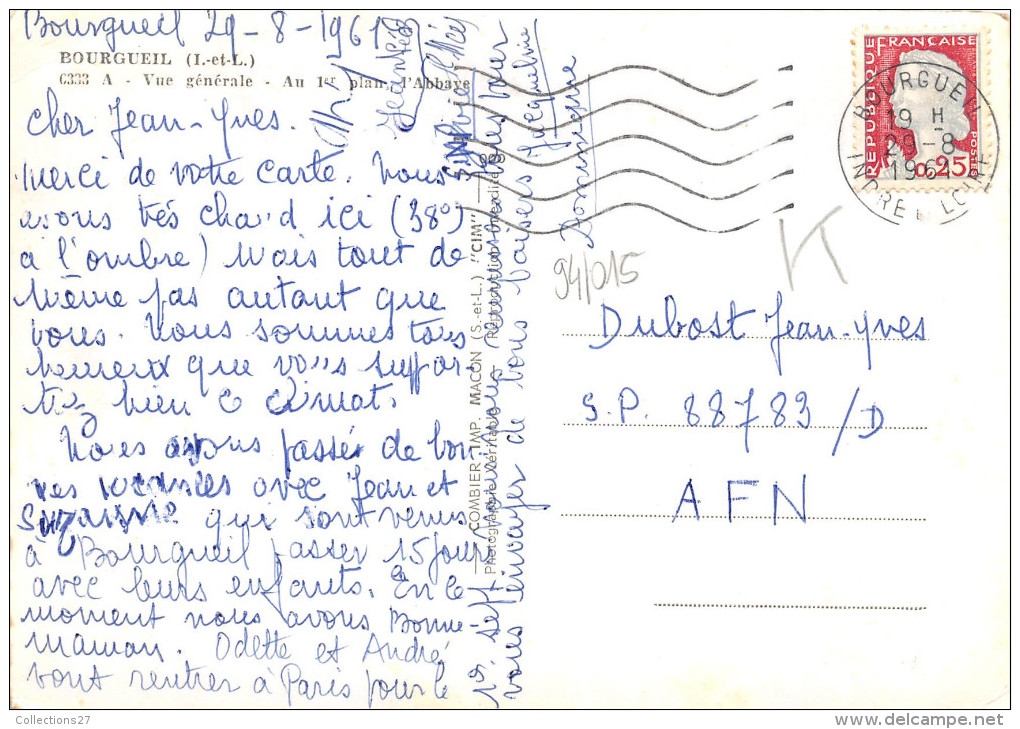 Bourgueil 29-8-1961
BOURGUEIL (I.-et-L.)
6333 A - Vue générale - Au 1er plan, l'Abbaye
Cher Jean-Yves.
Merci de votre carte. Nous
avons très chaud ici (38°)
à l'ombre) Mais tout de
même pas autant que
vous. Nous sommes tous
heureux que vous suppor
tiez bien ce climat.
Nous avons passé de bon
nes vacances avec Jean et
Suzanne qui sont venus
à Bourgueil passer 15 jours
avec leurs enfants. En ce
moment nous avons Bonne-
Maman. Odette et André
vont rentrer à Paris pour le
1er sept. nous
vous envoyer de bons baisers
Jacqueline
Dominique
COMBIER IMP. MACON (S.-et-L.) "CIM"
Photographie Véritable Reproduction Interdite
RÉPUBLIQUE
FRANÇAISE
POSTES
0,25
BOURGUEIL
19 H
29-8
1961
INDRE LOIRE
94/015
Dubost Jean-Yves
S.P. 88783/D
AFN
Collections27
www.delcampe.net